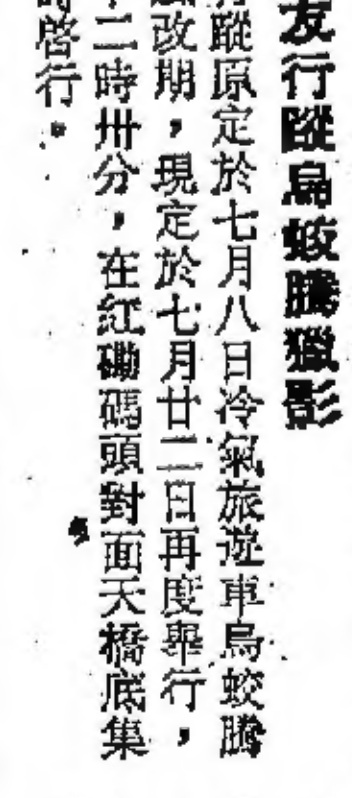 友行蹤烏蛟騰獵影
蹤原定於七月八日冷氣旅遊車烏蛟騰
改期，現定於七月廿二日再度舉行，
二時卅分，在紅磡碼頭對面天橋底集
啓行。